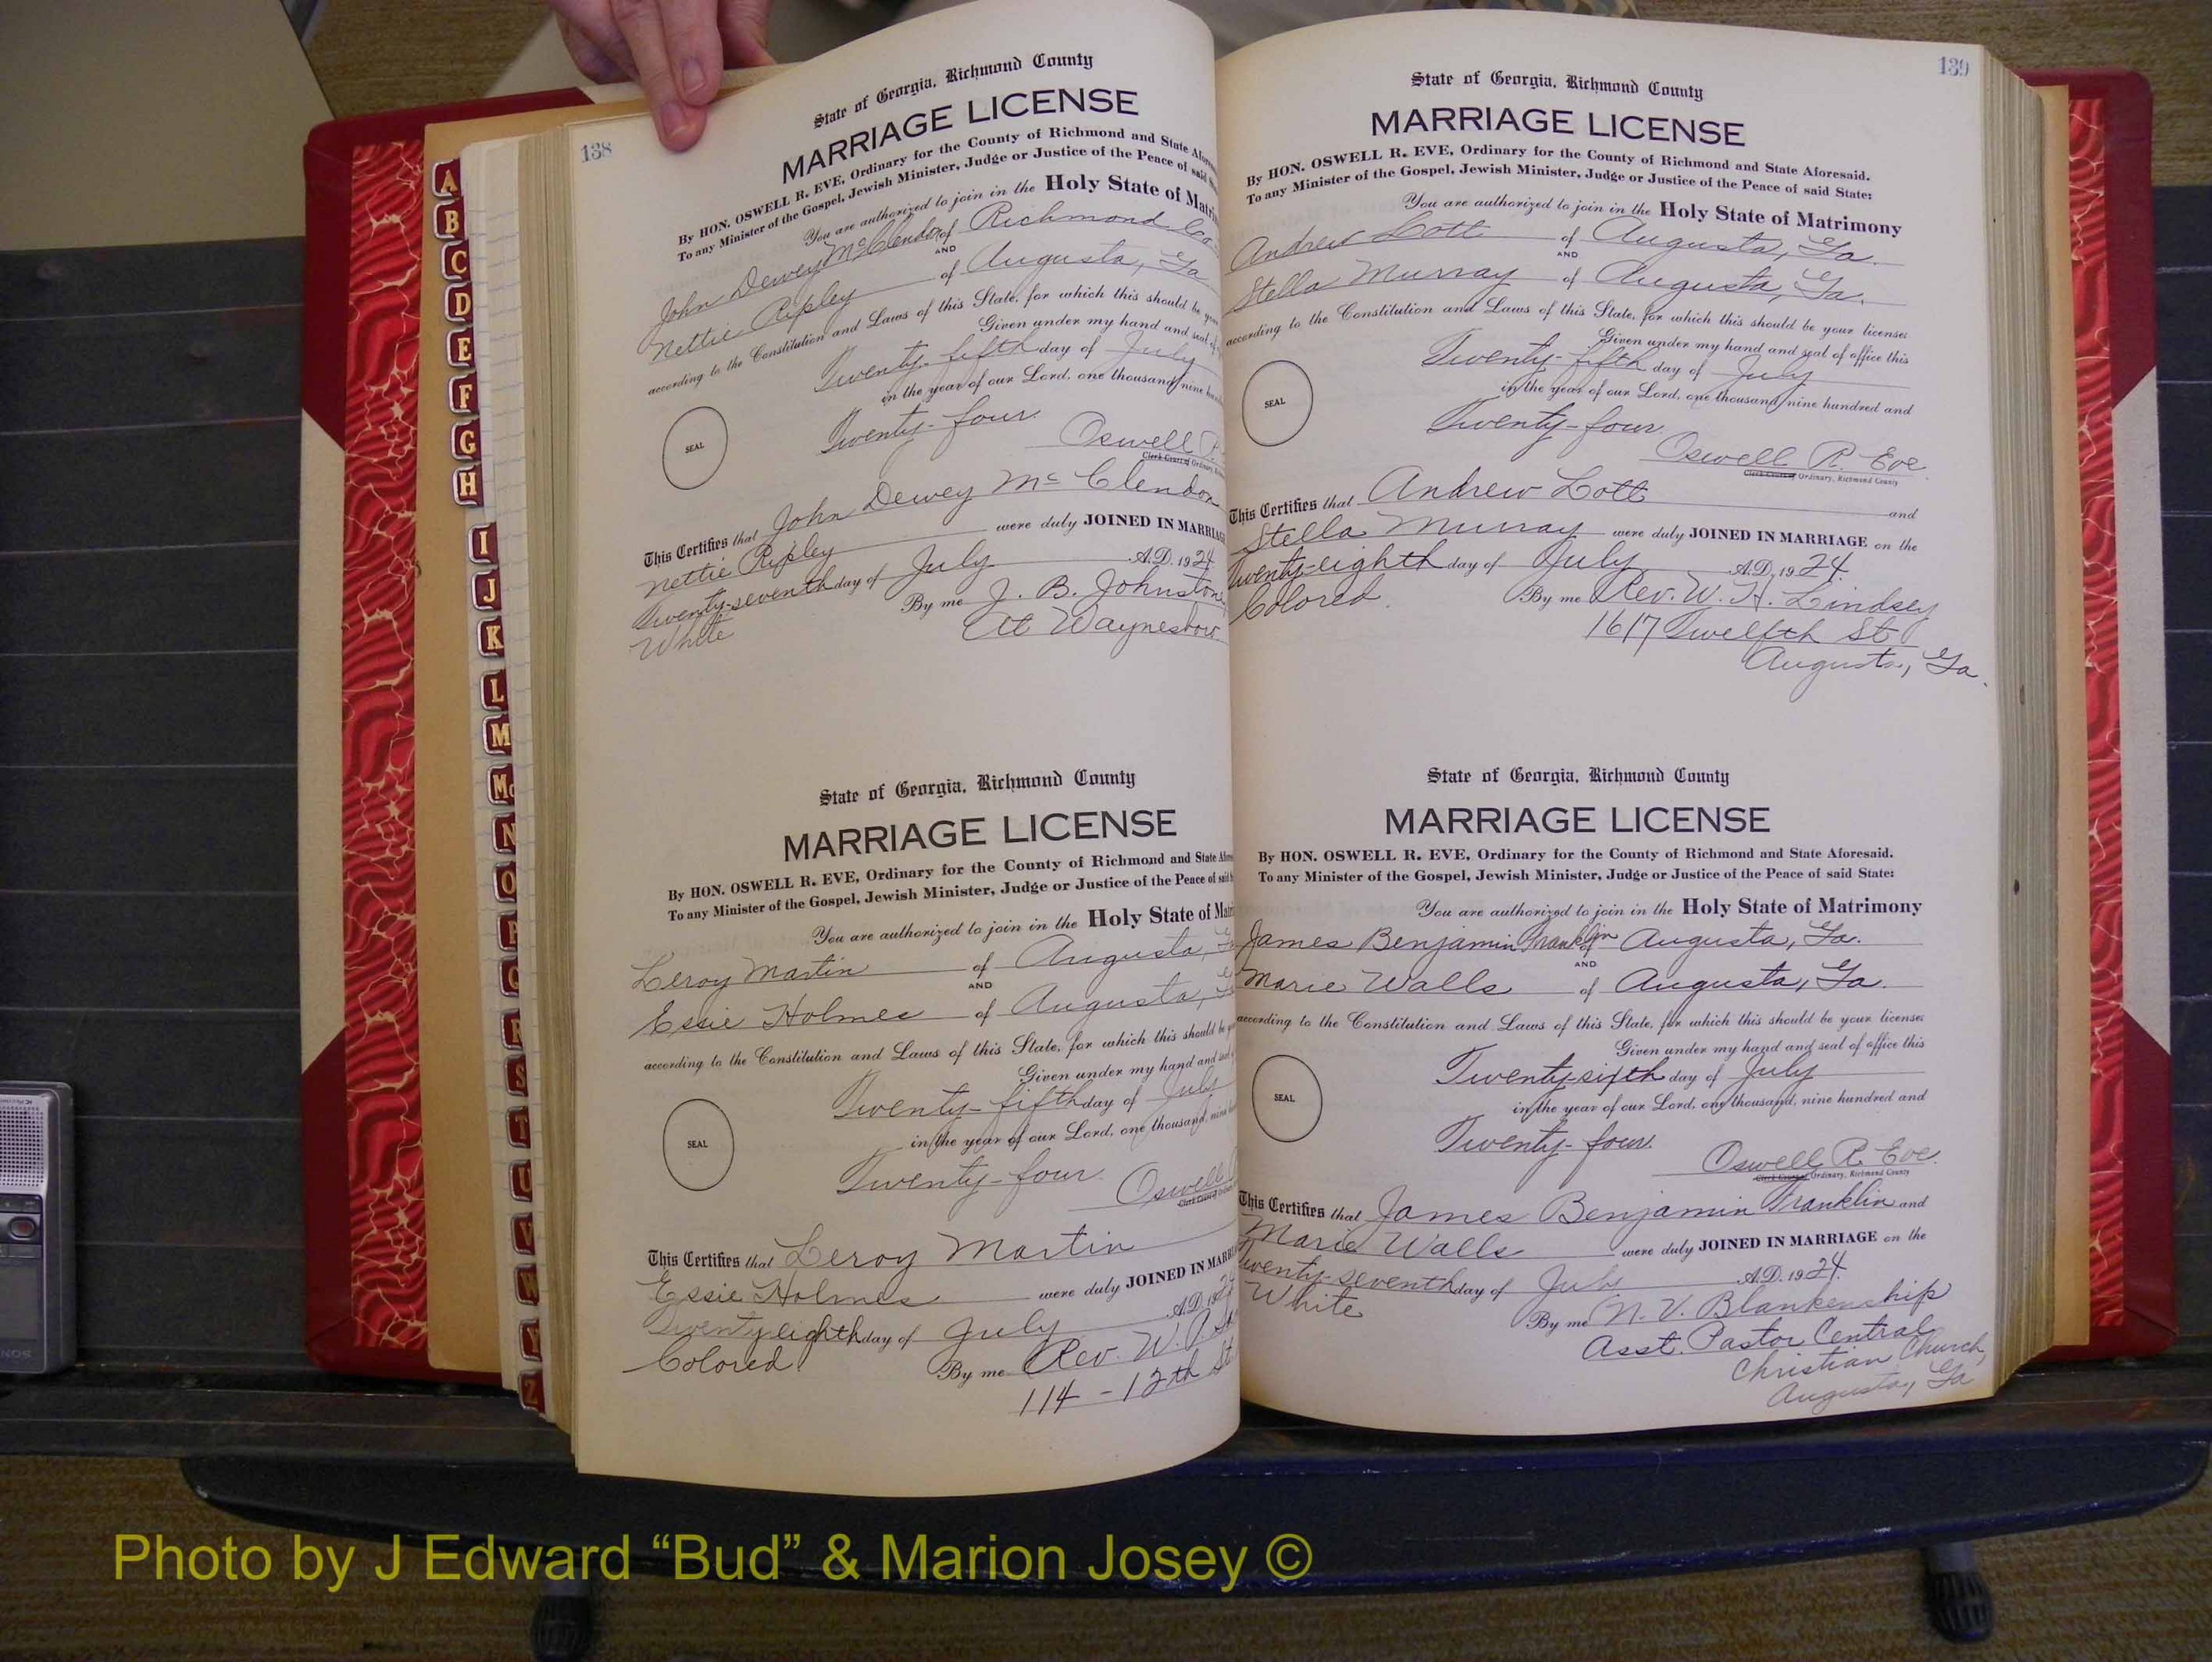 138
State of Georgia, Richmond County
MARRIAGE LICENSE
By HON. OSWELL R. EVE, Ordinary for the County of Richmond and State
To any Minister of the Gospel, Jewish Minister, Judge or Justice of the Peace of said
You are authorized to join in the Holy State of
John Dewey McClendon of Richmond Co
AND
Nettie Ripley of Augusta, Ga
according to the Constitution and Laws of this State, for which this should be
Given under my hand and seal of
Twenty-fifth day of July
in the year of our Lord, one thousand nine
Twenty-four.
SEAL
Oswell
Clerk Court of Ordinary,
This Certifies that John Dewey McClendon
Nettie Ripley were duly JOINED IN
Twenty-seventh day of July A.D. 1924
White By me J. B. Johnston
At
State of Georgia, Richmond County
MARRIAGE LICENSE
By HON. OSWELL R. EVE, Ordinary for the County of Richmond and State
To any Minister of the Gospel, Jewish Minister, Judge or Justice of the Peace of
You are authorized to join in the Holy State of
Leroy Martin of Augusta,
AND
Essie Holmes of Augusta,
according to the Constitution and Laws of this State, for which this should be
Given under my hand and
Twenty-fifth day of July
in the year of our Lord, one thousand,
Twenty-four.
SEAL
Oswell
Clerk Court of
This Certifies that Leroy Martin
Essie Holmes were duly JOINED IN
Twenty eighth day of July A.D. 1924
Colored. By me Rev. W.
114 - 12th St
139
State of Georgia, Richmond County
MARRIAGE LICENSE
By HON. OSWELL R. EVE, Ordinary for the County of Richmond and State Aforesaid.
To any Minister of the Gospel, Jewish Minister, Judge or Justice of the Peace of said State:
You are authorized to join in the Holy State of Matrimony
Andrew Lott of Augusta, Ga.
AND
Stella Murray of Augusta, Ga.
according to the Constitution and Laws of this State, for which this should be your licenses
Given under my hand and seal of office this
Twenty-fifth day of July
in the year of our Lord, one thousand nine hundred and
Twenty-four.
SEAL
Oswell R. Eve
Clerk Court of Ordinary, Richmond County
This Certifies that Andrew Lott and
Stella Murray were duly JOINED IN MARRIAGE on the
Twenty-eighth day of July A.D. 1924.
Colored. By me Rev. W. H. Lindsey
1617 Twelfth St
Augusta, Ga.
State of Georgia, Richmond County
MARRIAGE LICENSE
By HON. OSWELL R. EVE, Ordinary for the County of Richmond and State Aforesaid.
To any Minister of the Gospel, Jewish Minister, Judge or Justice of the Peace of said State:
You are authorized to join in the Holy State of Matrimony
James Benjamin Franklin of Augusta, Ga.
AND
Marie Walls of Augusta, Ga.
according to the Constitution and Laws of this State, for which this should be your licenses
Given under my hand and seal of office this
Twenty-sixth day of July
in the year of our Lord, one thousand, nine hundred and
Twenty-four.
SEAL
Oswell R. Eve.
Clerk Court of Ordinary, Richmond County
This Certifies that James Benjamin Franklin and
Marie Walls were duly JOINED IN MARRIAGE on the
Twenty-seventh day of July A.D. 1924.
White By me N. V. Blankenship
Asst. Pastor Central
Christian Church,
Augusta, Ga
A
B
C
D
E
F
G
H
I
J
K
L
M
Mc
N
O
P
Q
R
S
T
U
V
W
Y
Z
Photo by J Edward “Bud” & Marion Josey ©